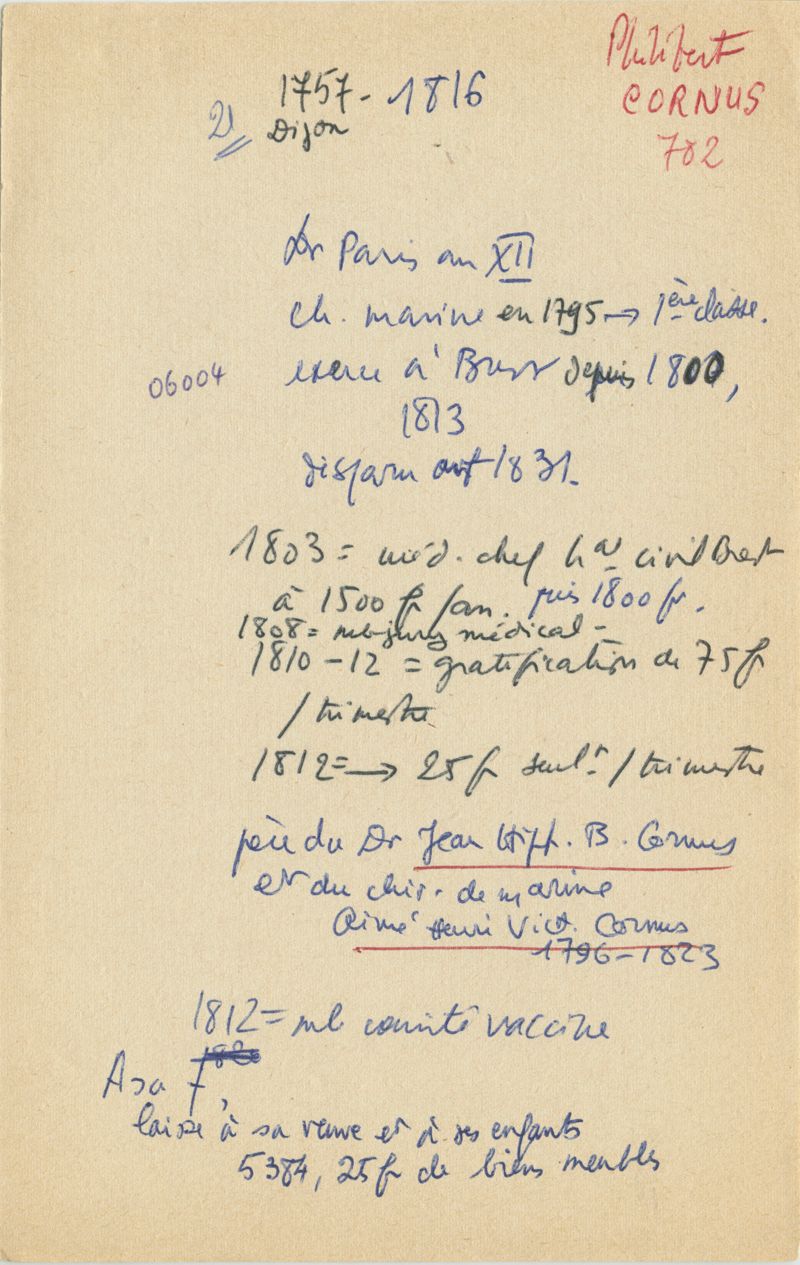 Philibert
CORNUS
782
2) 1757 - 1816
Dijon
Dr Paris an XII
ch. marine en 1795 → 1ère classe.
06004
exerce à Brest depuis 1800,
1813
disparu avt 1831.
1803 = méd. chef hal civil Brest
à 1500 fr /an. puis 1800 fr.
1808 = mb jury médical -
1810 - 12 = gratification de 75 fr
/ trimestre
1812 = → 25 fr seult / trimestre
père du Dr Jean Hipp. B. Cornus
et du chir. de marine
Aimé Henri Vict. Cornus
1796 - 1823
1812 = mb comité vaccine
A sa †,
laisse à sa veuve et à ses enfants
5384, 25 fr de biens meubles